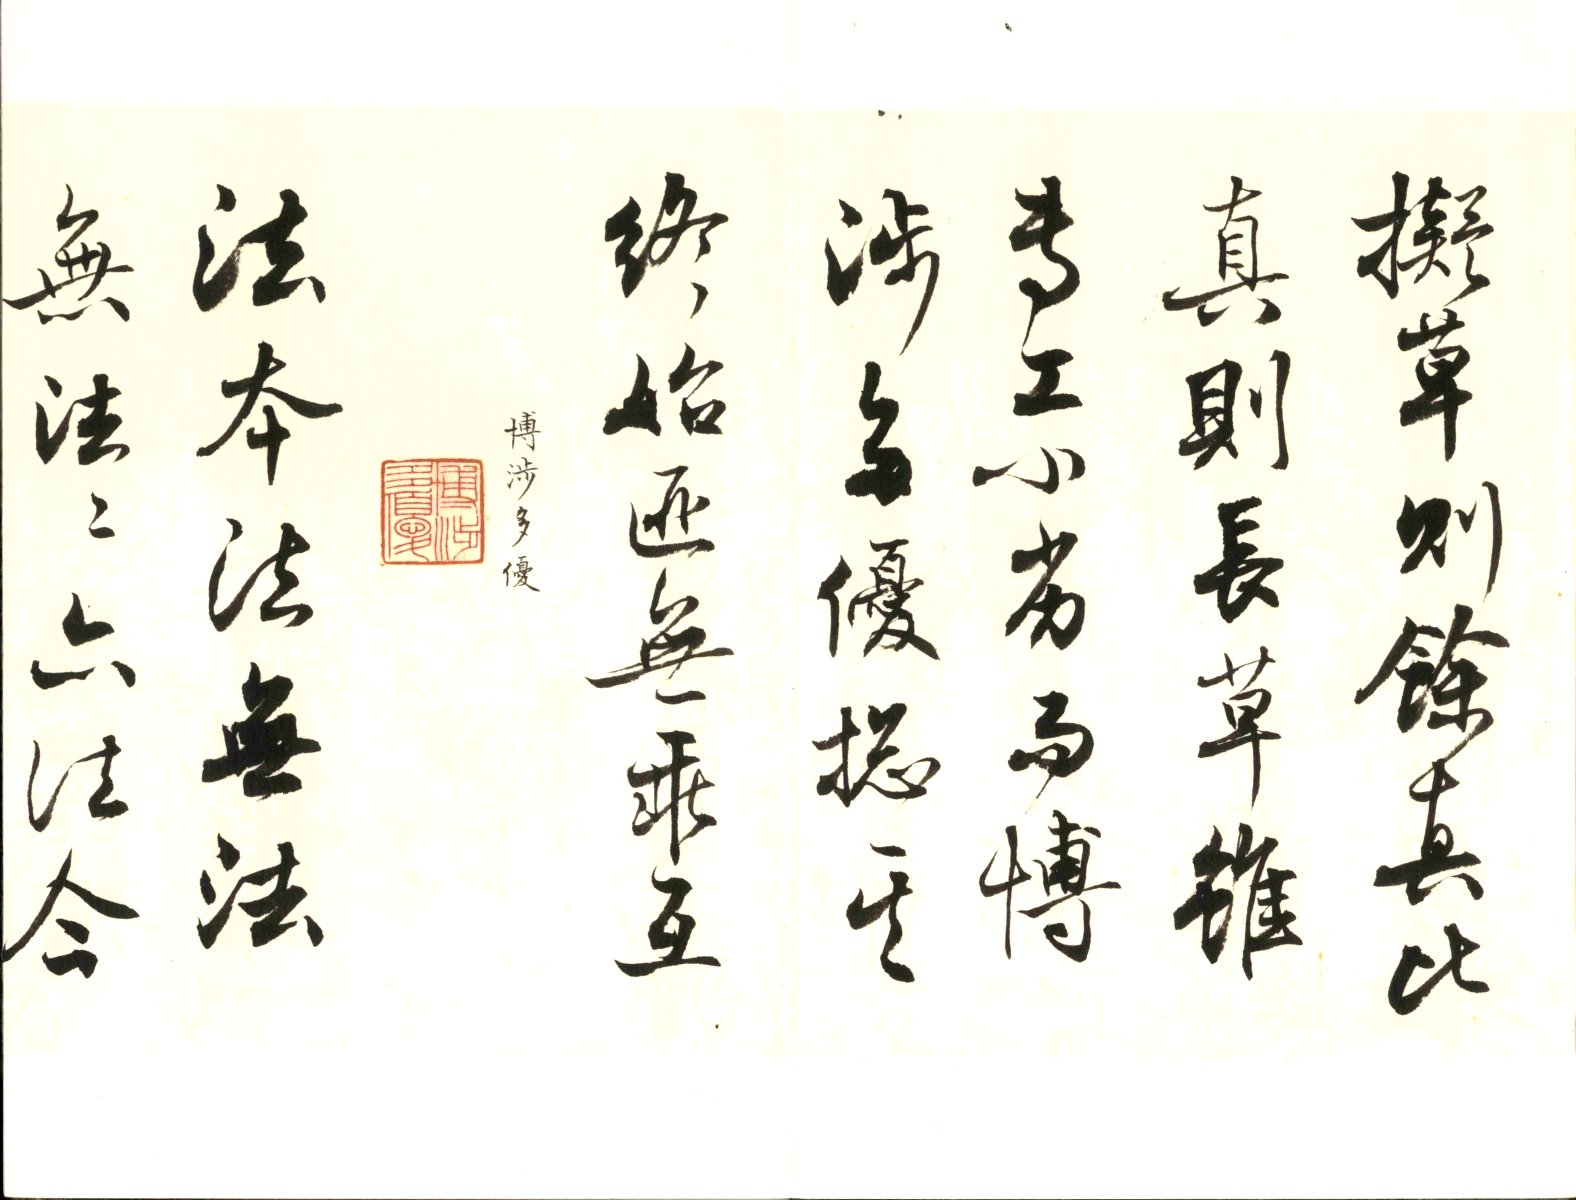 擬草則餘真比
真則長草雖
專工小劣而博
涉多優揔其
終始匪無乖互
博涉多優
博涉多優
法本法無法
無法〻亦法今